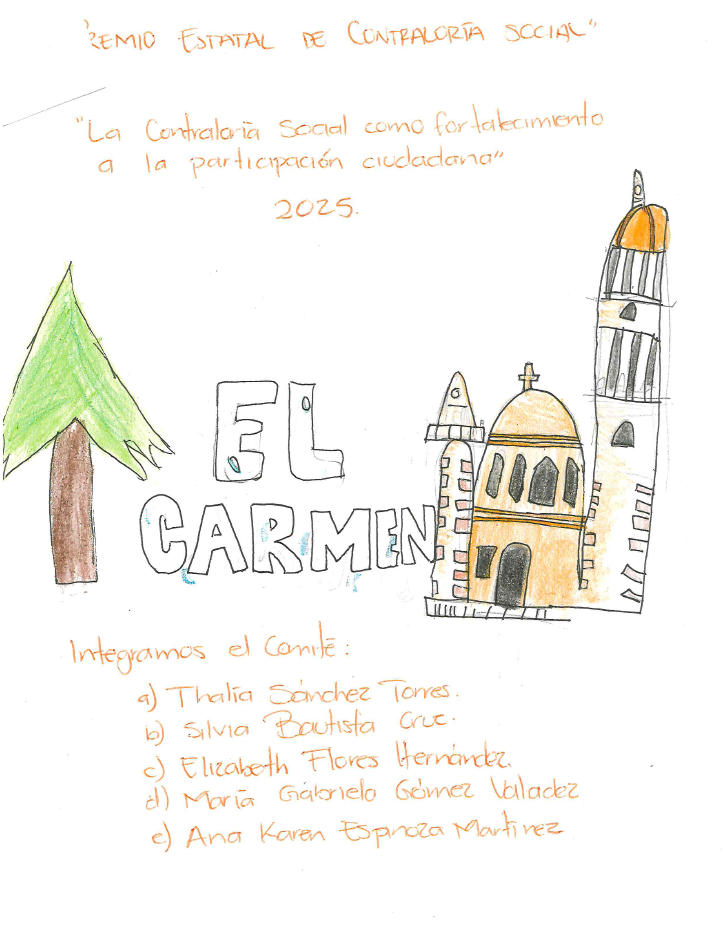 "PREMIO ESTATAL DE CONTRALORÍA SOCIAL"
"La Contraloría Social como fortalecimiento
a la participación ciudadana"
2025.
EL
CARMEN
Integramos el Comité:
a) Thalía Sánchez Torres.
b) Silvia Bautista Cruz.
c) Elizabeth Flores Hernández.
d) María Gabriela Gómez Valadez
e) Ana Karen Espinoza Martínez